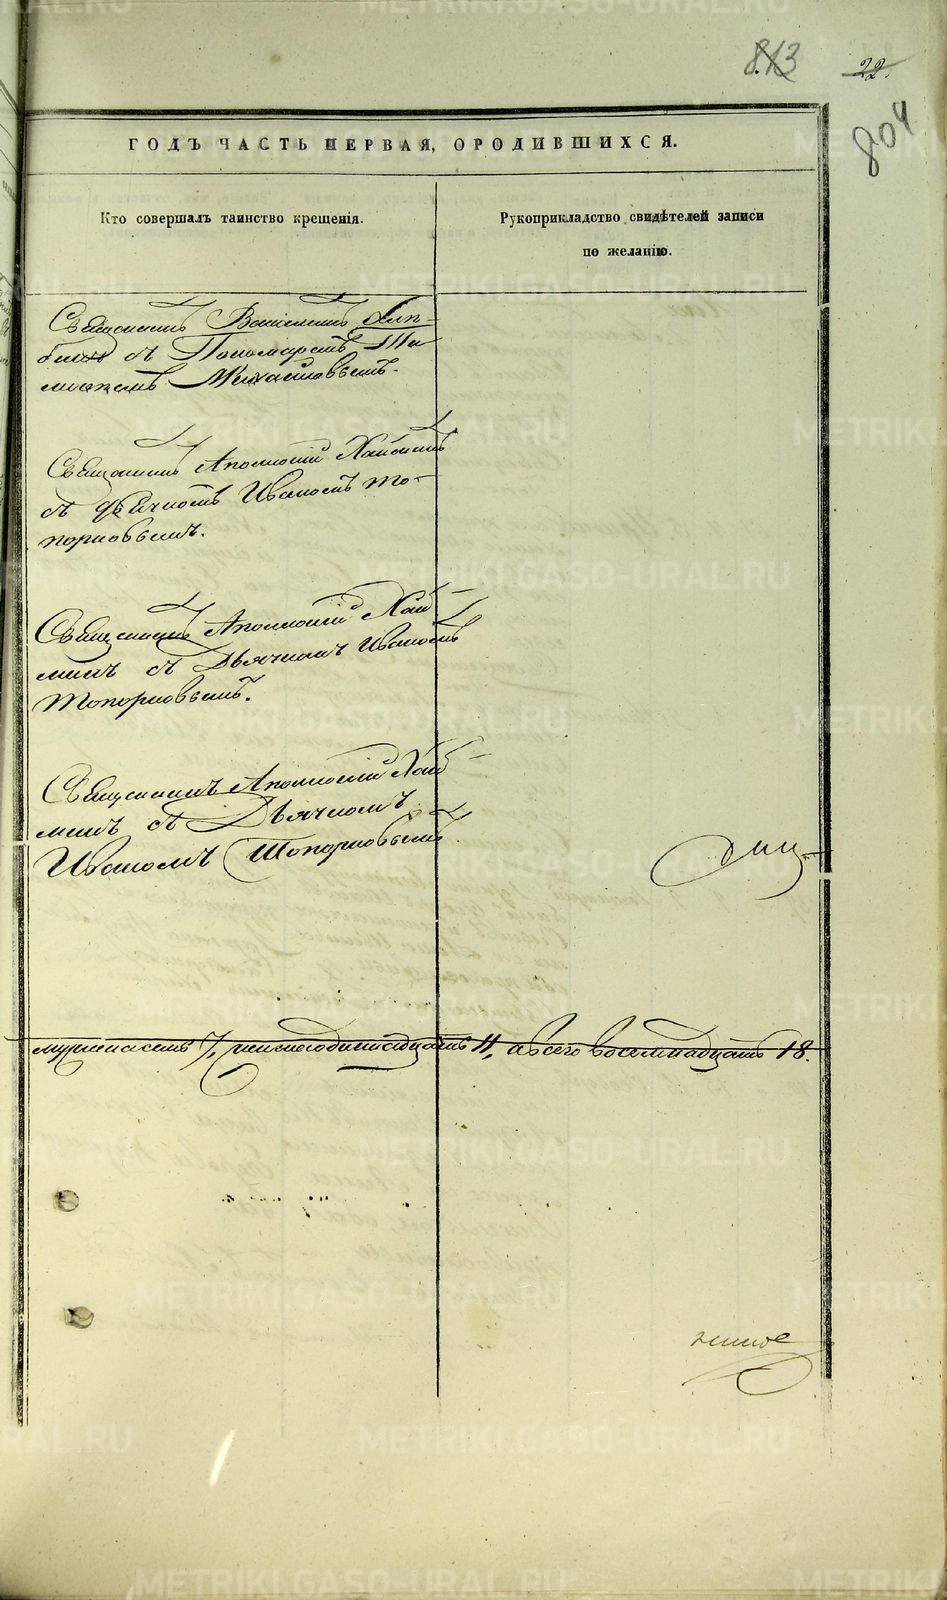 813
22.
804
ГОДЪ ЧАСТЬ ПЕРВАЯ, О РОДИВШИХСЯ.
Кто совершалъ таинство крещенія.
Рукоприкладство свидѣтелей записи
по желанію.
Священникъ
съ Пономаремъ
Михайловымъ.
Священникъ Аполлоній
съ дьячкомъ Иваномъ То-
порковымъ.
Священникъ Аполлоній
съ Дьячкомъ Иваномъ
Топорковымъ.
Священникъ Аполлоній
съ Дьячкомъ
Иваномъ Топорковымъ.
мужескаго 7, женскаго одиннадцать 11, а всего восемнадцать 18.
METRIKI.GASO-URAL.RU